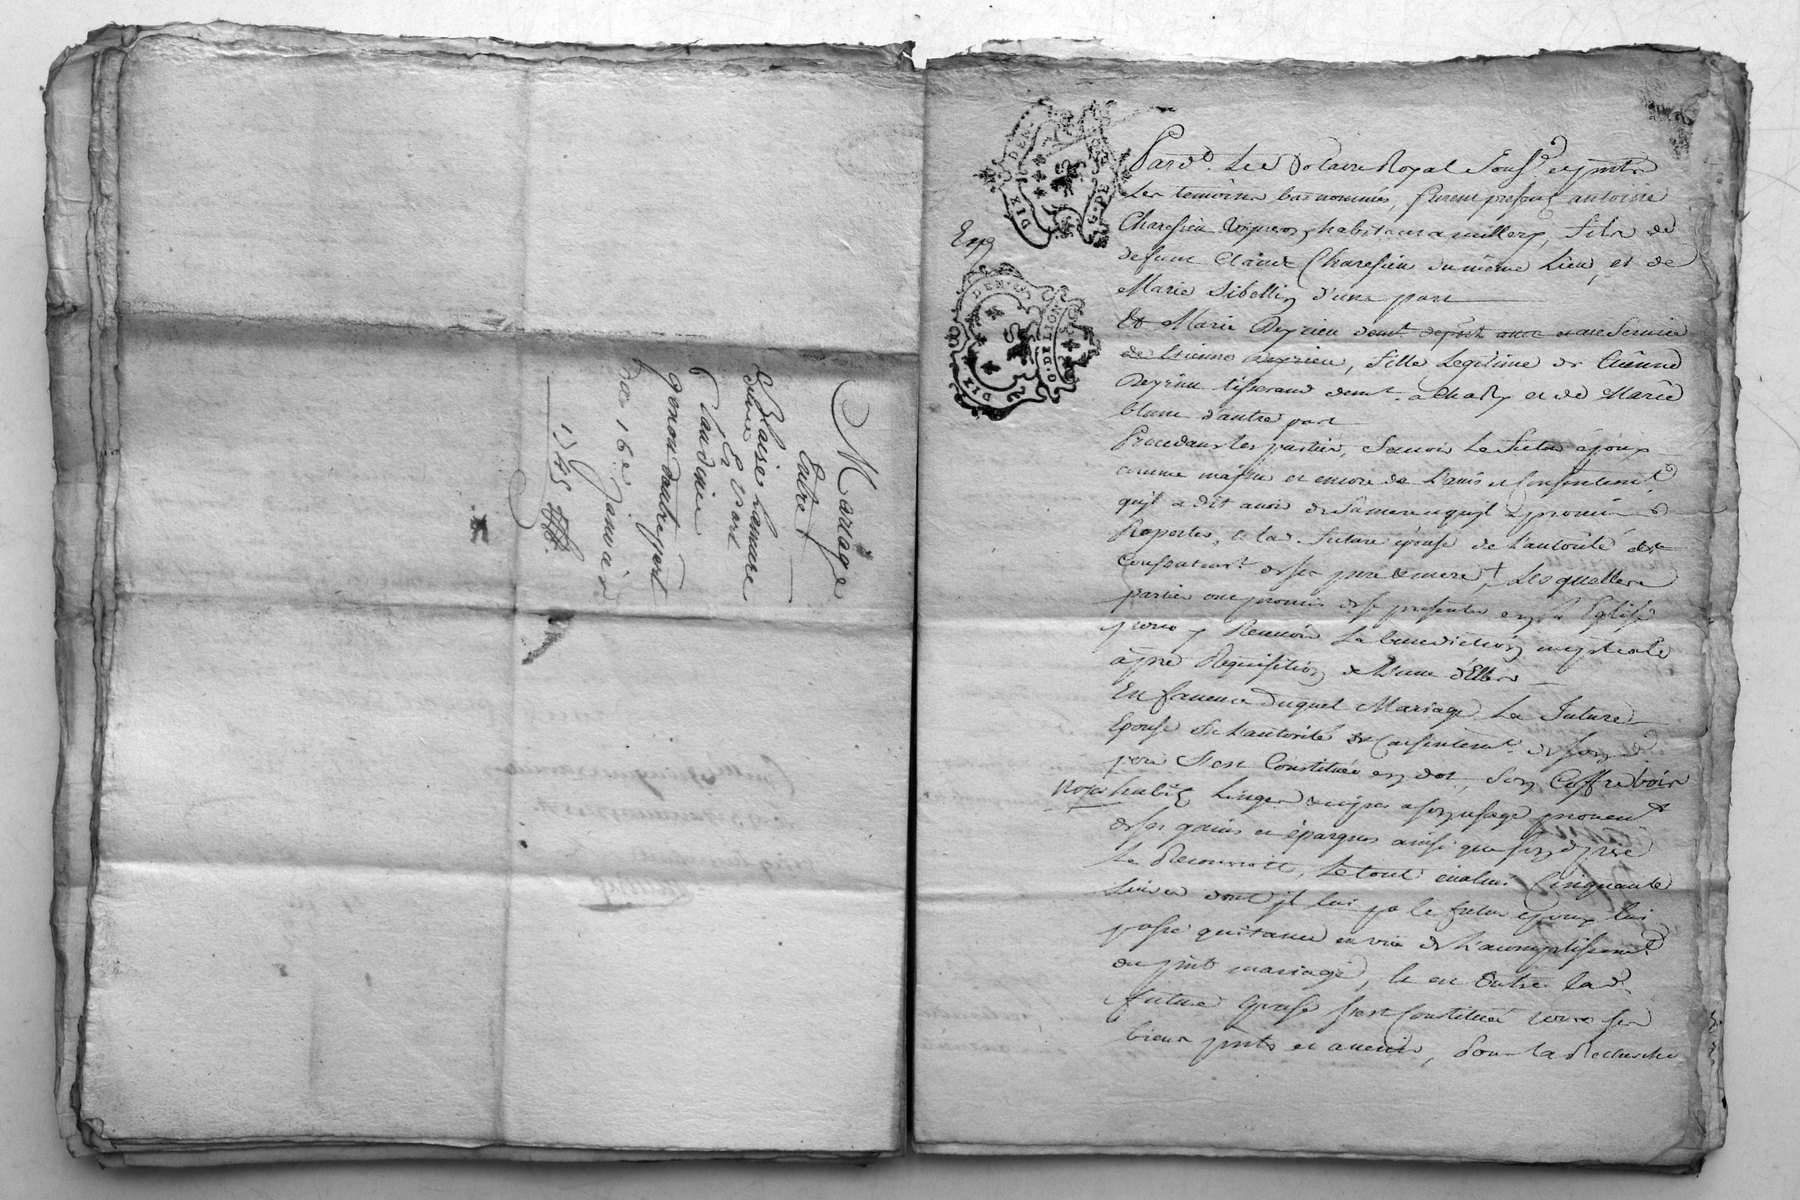 Mariage
Entre
Blaise
Et
Claudine
gonon dautre part
Du 16e Janvier
1745
DIX DEN.
G. PE
Exp
DIX DEN.
G. DE LION
Pard.t Le Notaire Royal Sous.é et pnts
Les temoins bas nommés, furent presens antoine
Charesieu Vigneron habitant a millery, fils de
defunt Claude Charesieu du même Lieu, et de
Marie Sibellin d'une part
Et Marie Deyrieu demt
de Etienne Deyrieu, fille Legitime de Etienne
Deyrieu tisserand demt. a Charly et de Marie
blanc d'autre part
Procedants les parties, Scavoir Le futur epoux
comme majeur et encore de L'avis et Consentemt.
qu'il a dit avoir de Sa mere et qu'il a promis
Raporter, & la future épouse de L'autorité &
Consentemt. de ses pere & mere, + Lesquelles
parties ont promis de se presenter en Ste Eglise
pour y Recevoir La benediction nuptiale
a pre Requisition de L'une d'Elles
En faveur duquel Mariage La future
Epouse de L'autorité & Consentemt. de son d.
pere s'est Constituée en dot, Son Coffre bois
noyer habits, Linges & nipes a son usage provent
de ses gains et épargnes ainsi que son d. pere
Le Reconnoit, Le tout evalué Cinquante
Livres dont il lui le futur epoux lui
passe quitance en vüe de L'acomplissemt
du pnt mariage, & en Outre lad.
future Epouse s'est Constituée tous ses
biens pnts et avenir, Pour la Recherche